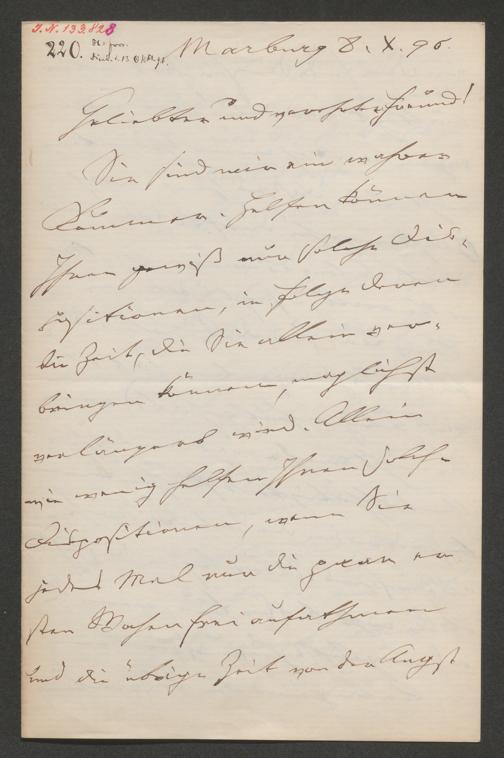 I.N. 133.828
220.
Marburg 8. X. 95.
Geliebter und verehrter Freund!
Sie sind mir ein wahrer
Kummer. Helfen können
Ihnen gewiß nur solche Dis-
positionen, in folge deren
die Zeit, die Sie allein ver-
bringen können, möglichst
verlängert wird. Allein
wie wenig helfen Ihnen solche
Dispositionen, wenn Sie
jedes Mal nur die paar er
sten Wochen frei aufathmen
und die übrige Zeit von der Angst